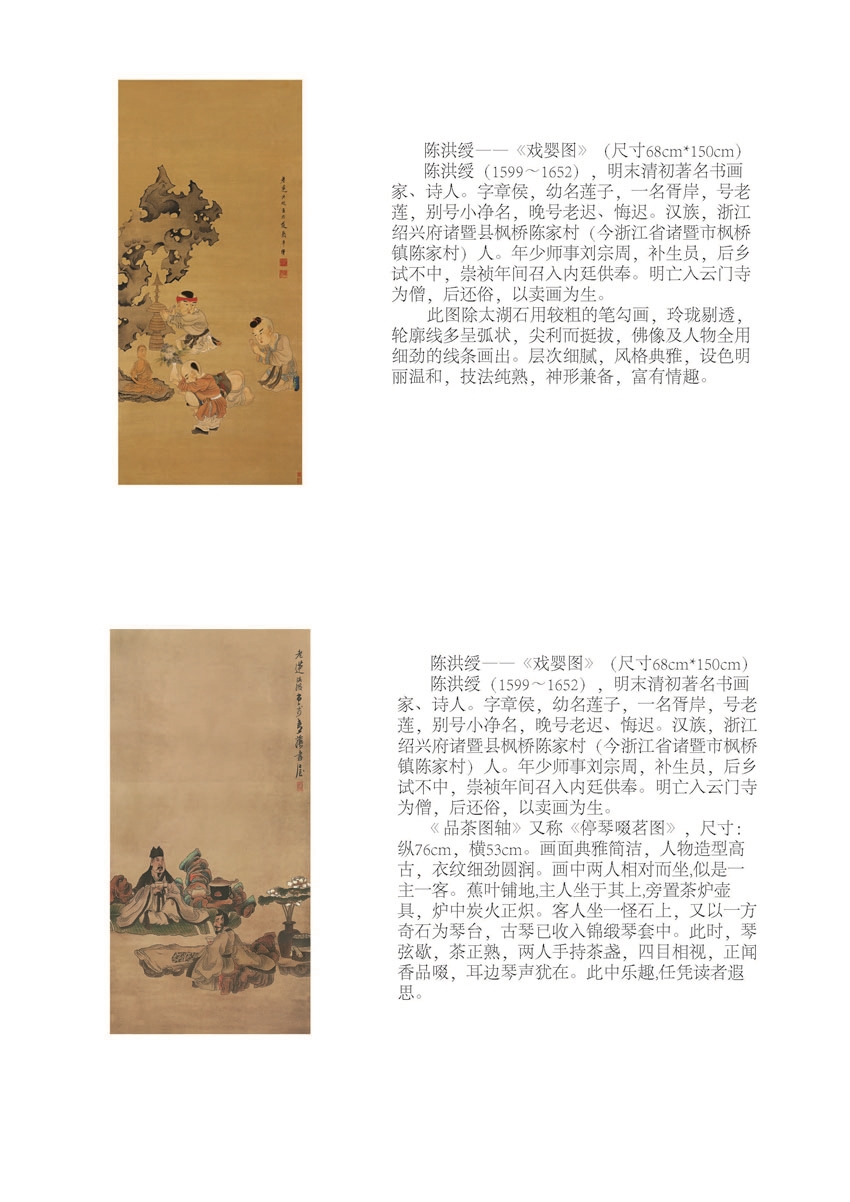 陈洪绶——《戏婴图》（尺寸68cm*150cm）
陈洪绶（1599～1652），明末清初著名书画
家、诗人。字章侯，幼名莲子，一名胥岸，号老
莲，别号小净名，晚号老迟、悔迟。汉族，浙江
绍兴府诸暨县枫桥陈家村（今浙江省诸暨市枫桥
镇陈家村）人。年少师事刘宗周，补生员，后乡
试不中，崇祯年间召入内廷供奉。明亡入云门寺
为僧，后还俗，以卖画为生。
此图除太湖石用较粗的笔勾画，玲珑剔透，
轮廓线多呈弧状，尖利而挺拔，佛像及人物全用
细劲的线条画出。层次细腻，风格典雅，设色明
丽温和，技法纯熟，神形兼备，富有情趣。
陈洪绶——《戏婴图》（尺寸68cm*150cm）
陈洪绶（1599～1652），明末清初著名书画
家、诗人。字章侯，幼名莲子，一名胥岸，号老
莲，别号小净名，晚号老迟、悔迟。汉族，浙江
绍兴府诸暨县枫桥陈家村（今浙江省诸暨市枫桥
镇陈家村）人。年少师事刘宗周，补生员，后乡
试不中，崇祯年间召入内廷供奉。明亡入云门寺
为僧，后还俗，以卖画为生。
《品茶图轴》又称《停琴啜茗图》，尺寸：
纵76cm，横53cm。画面典雅简洁，人物造型高
古，衣纹细劲圆润。画中两人相对而坐,似是一
主一客。蕉叶铺地,主人坐于其上,旁置茶炉壶
具，炉中炭火正炽。客人坐一怪石上，又以一方
奇石为琴台，古琴已收入锦缎琴套中。此时，琴
弦歇，茶正熟，两人手持茶盏，四目相视，正闻
香品啜，耳边琴声犹在。此中乐趣,任凭读者遐
思。